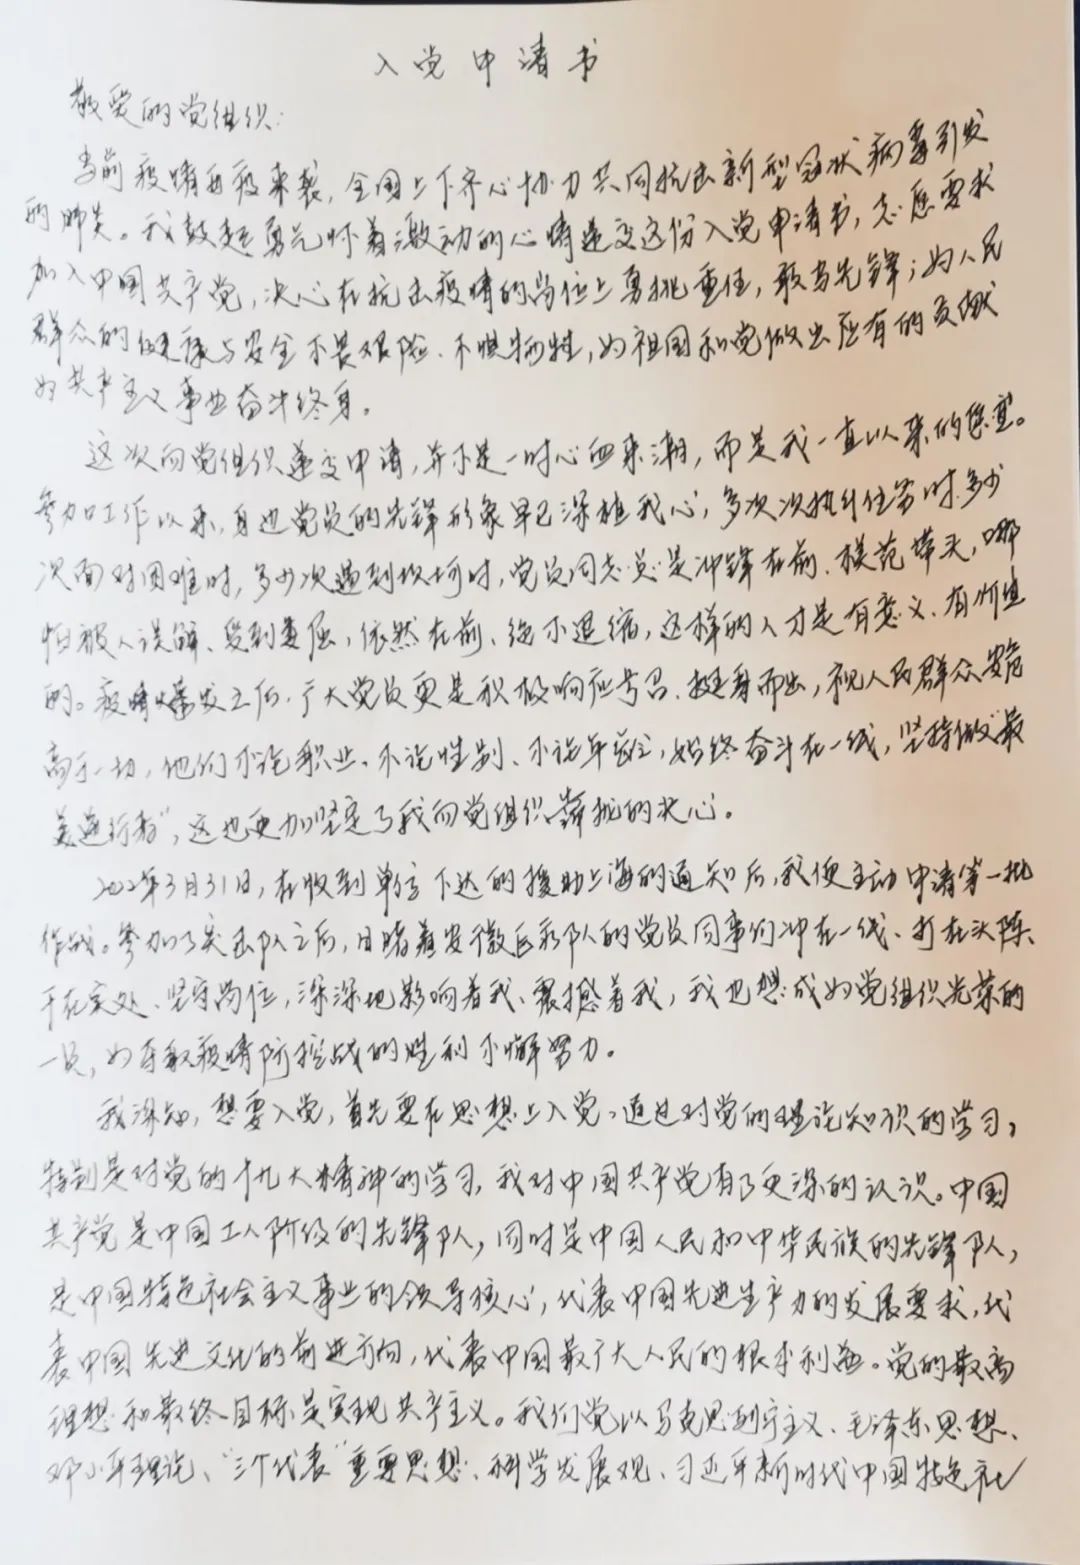 入党申请书
敬爱的党组织:
当前疫情再度来袭,全国上下齐心协力共同抗击新型冠状病毒引发
的肺炎。我鼓起勇气怀着激动的心情递交这份入党申请书,志愿要求
加入中国共产党,决心在抗击疫情的岗位上勇挑重任,敢当先锋;为人民
群众的健康与安全不畏艰险、不惧牺牲,为祖国和党做出应有的贡献
为共产主义事业奋斗终身。
这次向党组织递交申请,并不是一时心血来潮,而是我一直以来的愿望。
参加工作以来,身边党员的先锋形象早已深植我心,多次次执行任务时、多少
次面对困难时,多少次遇到坎坷时,党员同志总是冲锋在前、模范带头,哪
怕被人误解、受到委屈,依然在前、绝不退缩,这样的人才是有意义、有价值
的。疫情爆发之后,广大党员更是积极响应号召、挺身而出,视人民群众安危
高于一切,他们不论职业、不论性别、不论年龄,始终奋斗在一线,坚持做"最
美逆行者",这也更加坚定了我向党组织靠拢的决心。
2022年3月31日,在收到单位下达的援助上海的通知后,我便主动申请第一批
作战。参加了突击队之后,目睹着安徽医疗队的党员同事们冲在一线、打在头阵、
干在实处、坚守岗位,深深地影响着我、震撼着我,我也想成为党组织光荣的
一员,为夺取疫情防控战的胜利不懈努力。
我深知,想要入党,首先要在思想上入党。通过对党的理论知识的学习,
特别是对党的十九大精神的学习,我对中国共产党有了更深的认识。中国
共产党是中国工人阶级的先锋队,同时是中国人民和中华民族的先锋队,
是中国特色社会主义事业的领导核心,代表中国先进生产力的发展要求,代
表中国先进文化的前进方向,代表中国最广大人民的根本利益。党的最高
理想和最终目标是实现共产主义。我们党以马克思列宁主义、毛泽东思想、
邓小平理论、"三个代表"重要思想、科学发展观、习近平新时代中国特色社